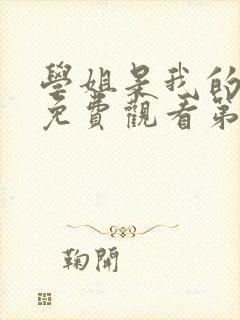 學姐是我的
免費觀看第
鞠開